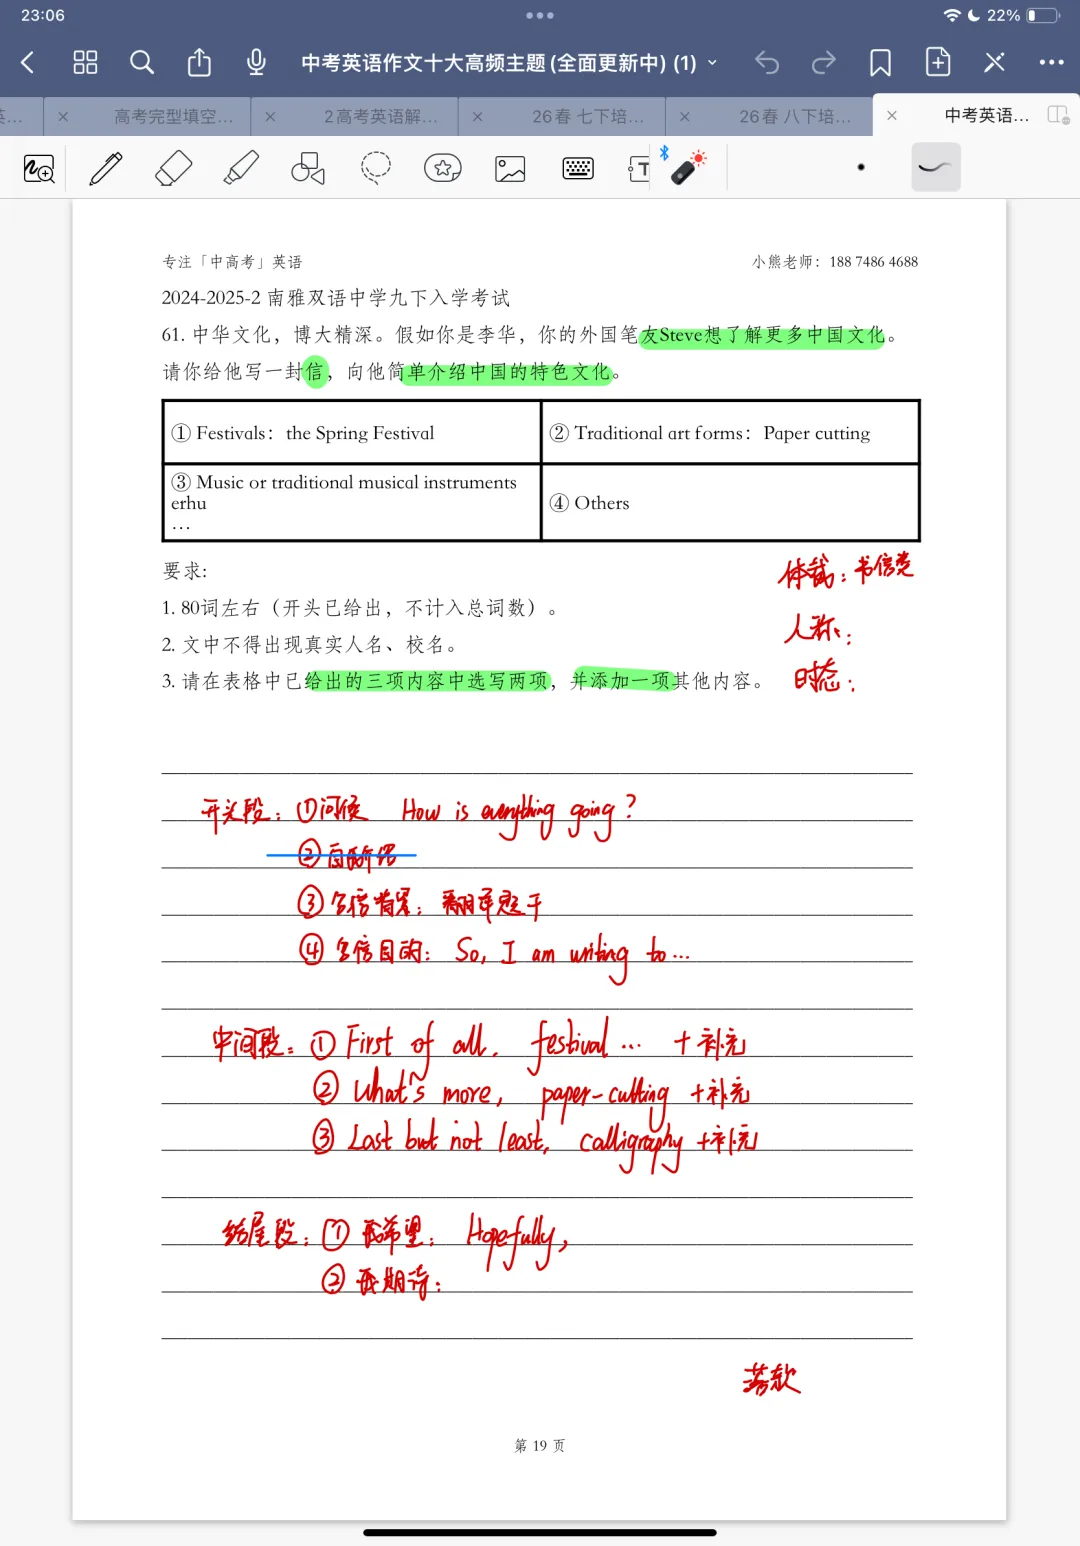 23:06
22%
中考英语作文十大高频主题(全面更新中) (1)
高考完型填空...
2高考英语解...
26春 七下培...
26春 八下培...
中考英语...
专注「中高考」英语
小熊老师：188 7486 4688
2024-2025-2 南雅双语中学九下入学考试
61. 中华文化，博大精深。假如你是李华，你的外国笔友Steve想了解更多中国文化。
请你给他写一封信，向他简单介绍中国的特色文化。
① Festivals：the Spring Festival
② Traditional art forms：Paper cutting
③ Music or traditional musical instruments
erhu
…
④ Others
要求:
1. 80词左右（开头已给出，不计入总词数）。
2. 文中不得出现真实人名、校名。
3. 请在表格中已给出的三项内容中选写两项，并添加一项其他内容。
体裁：书信类
人称：
时态：
开头段：①问候 How is everything going?
②自我介绍
③写信背景：翻译题干
④写信目的：So, I am writing to…
中间段：① First of all, festival… +补充
② What's more, paper-cutting +补充
③ Last but not least, calligraphy +补充
结尾段：① 表希望：Hopefully,
② 表期待：
落款
第 19 页